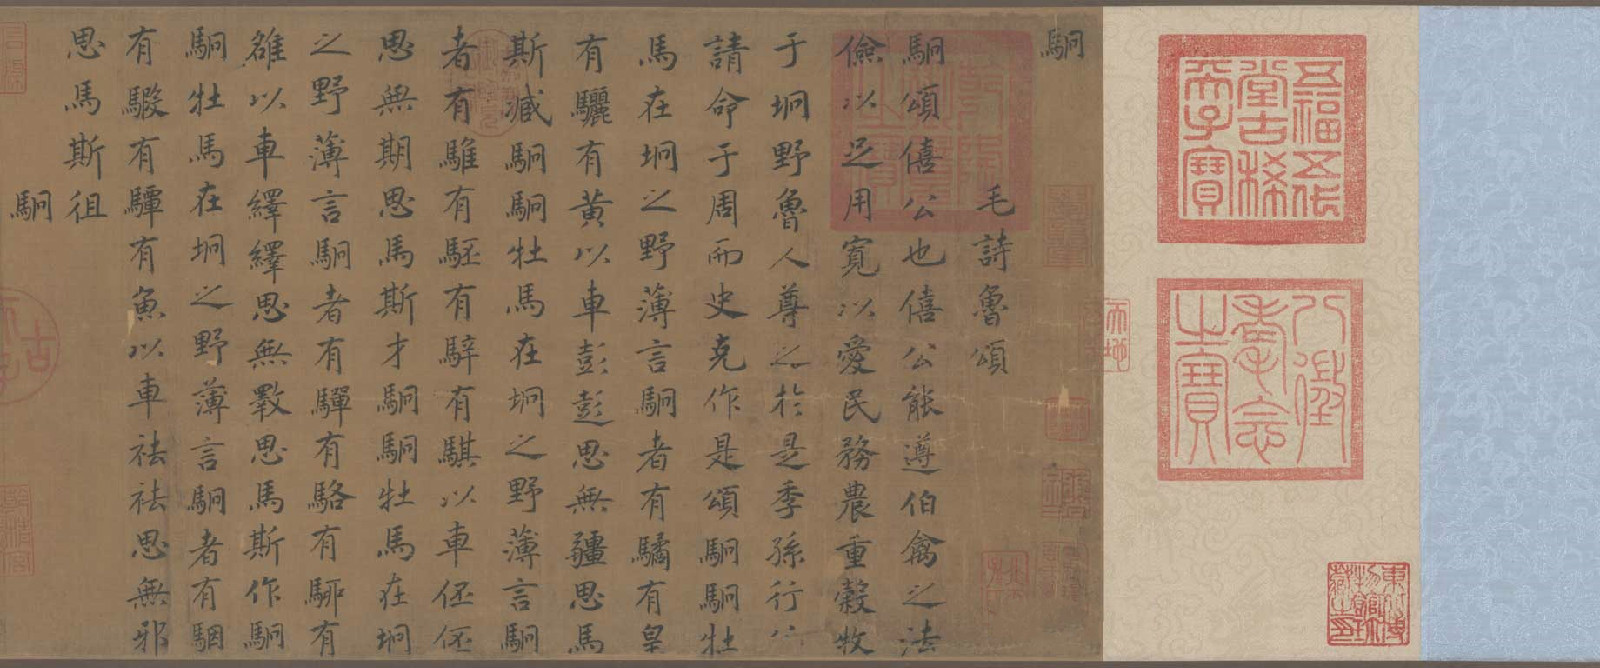 五福五代
堂古稀
天子寶
八徵
耄念
之寶
東北博
物館珍
藏之印
駉
毛詩魯頌
駉頌僖公也僖公能遵伯禽之法
儉以足用寬以愛民務農重穀牧
于坰野魯人尊之於是季孫行父
請命于周而史克作是頌駉駉牡
馬在坰之野薄言駉者有驈有皇
有驪有黃以車彭彭思無疆思馬
斯臧駉駉牡馬在坰之野薄言駉
者有騅有駓有騂有騏以車伾伾
思無期思馬斯才駉駉牡馬在坰
之野薄言駉者有驒有駱有駵有
雒以車繹繹思無斁思馬斯作駉
駉牡馬在坰之野薄言駉者有駰
有騢有驔有魚以車祛祛思無邪
思馬斯徂
駉